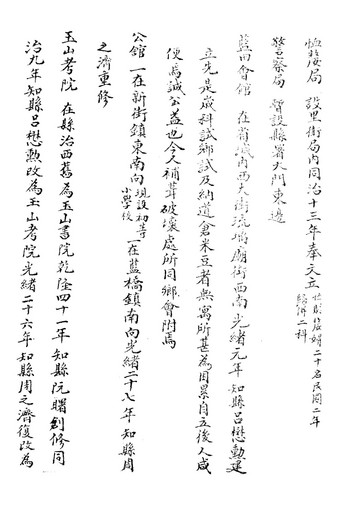 恤嫠局 設里街局內同治十三年奉文立
警察局 暫設縣署大門東邊
藍田會館 在省城內西大街流水廟街西南光緒元年知縣呂懋勳建
立先是歲科試鄉試及納道倉米豆者無寓所甚為困累自立後人咸
便焉誠公益也今又補葺破壞處所同鄉會附焉
公館 一在新街鎮東南向現設初等小學校 一在藍橋鎮南向光緒二十八年知縣周
之濟重修
玉山考院 在縣治西舊為玉山書院乾隆四十一年知縣阮曙創修同
治九年知縣呂懋勳改為玉山考院光緒二十六年知縣周之濟復改為